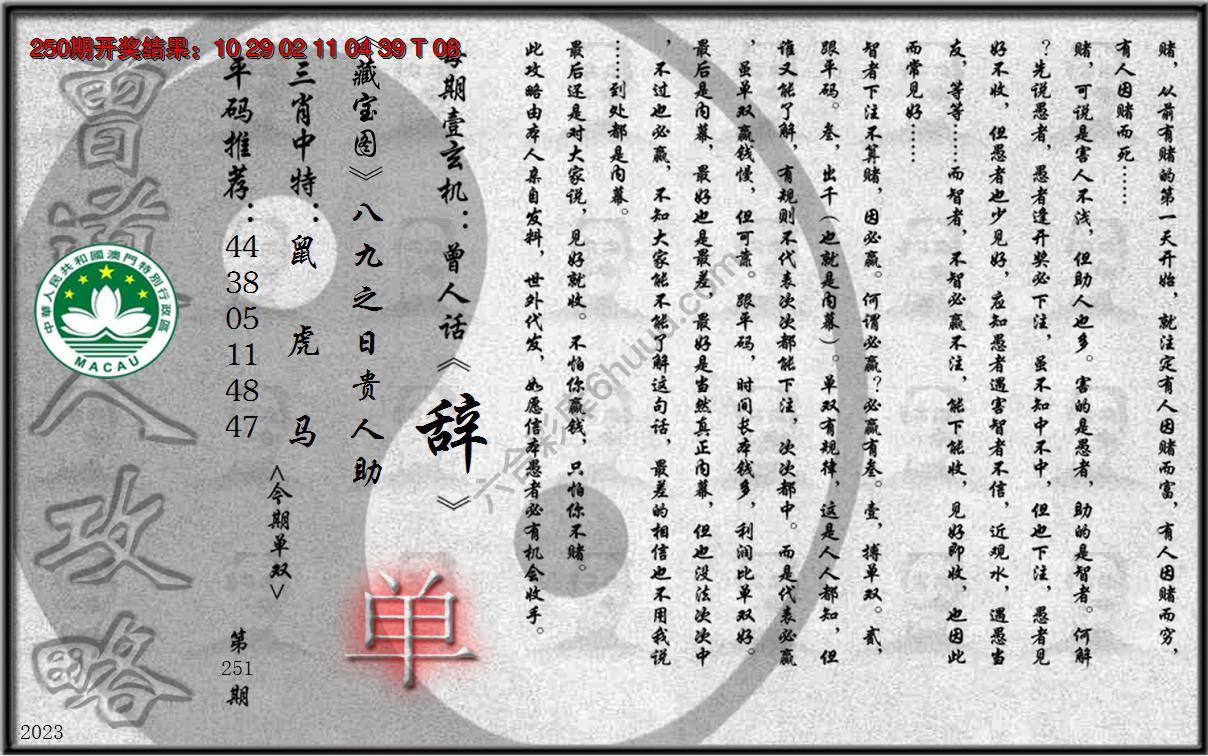 250期开奖结果：10 29 02 11 04 39 T 08
赌，从前有赌的第一天开始，就注定有人因赌而富，有人因赌而穷，
有人因赌而死……
赌，可说是害人不浅，但助人也多。害的是愚者，助的是智者。何解
？先说愚者，愚者逢开奖必下注，虽不知中不中，但也下注，愚者见
好不收，但愚者也少见好，应知愚者遇害智者不信，近观水，遇愚当
友，等等……而智者，不智必赢不注，能下能收，见好即收，也因此
而常见好……
智者下注不算赌，因必赢。何谓必赢？必赢有叁。壹，搏单双。贰，
跟平码。叁，出千（也就是内幕）。单双有规律，这是人人都知，但
谁又能了解，有规则不代表次次都能下注，次次都中。而是代表必赢
，虽单双赢钱慢，但可靠。跟平码，时间长本钱多，利润比单双好。
最后是内幕，最好也是最差，最好是当然真正内幕，但也没法次次中
，不过也必赢，不知大家能不能了解这句话，最差的相信也不用我说
……到处都是内幕。
最后还是对大家说，见好就收。不怕你赢钱，只怕你不赌。
此攻略由本人亲自发料，世外代发，如愿信本愚者必有机会收手。
每期壹玄机：曾人话《辞》
《藏宝图》八九之日贵人助
单
三肖中特：鼠 虎 马
<今期单双>
平码推荐：
44
38
05
11
48
47
第
251
期
曾道人攻略
中華人民共和國澳門特別行政區
MACAU
六合彩库6huuu.com
2023